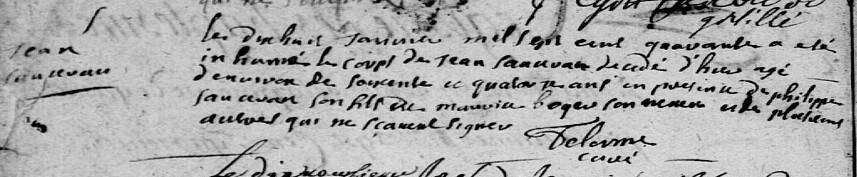 Jean
Sauuvau
le dixhuit Janvier mil sept cens quarante a eté
inhumé le corps de Jean Sauuvau decedé d'hier agé
d'environ de soixante et quatorze ans en presence de philippe
Sauuvau son fils de maurice Boger son neveu et de plusieurs
autres qui ne sçavent signer
Delorme
curé